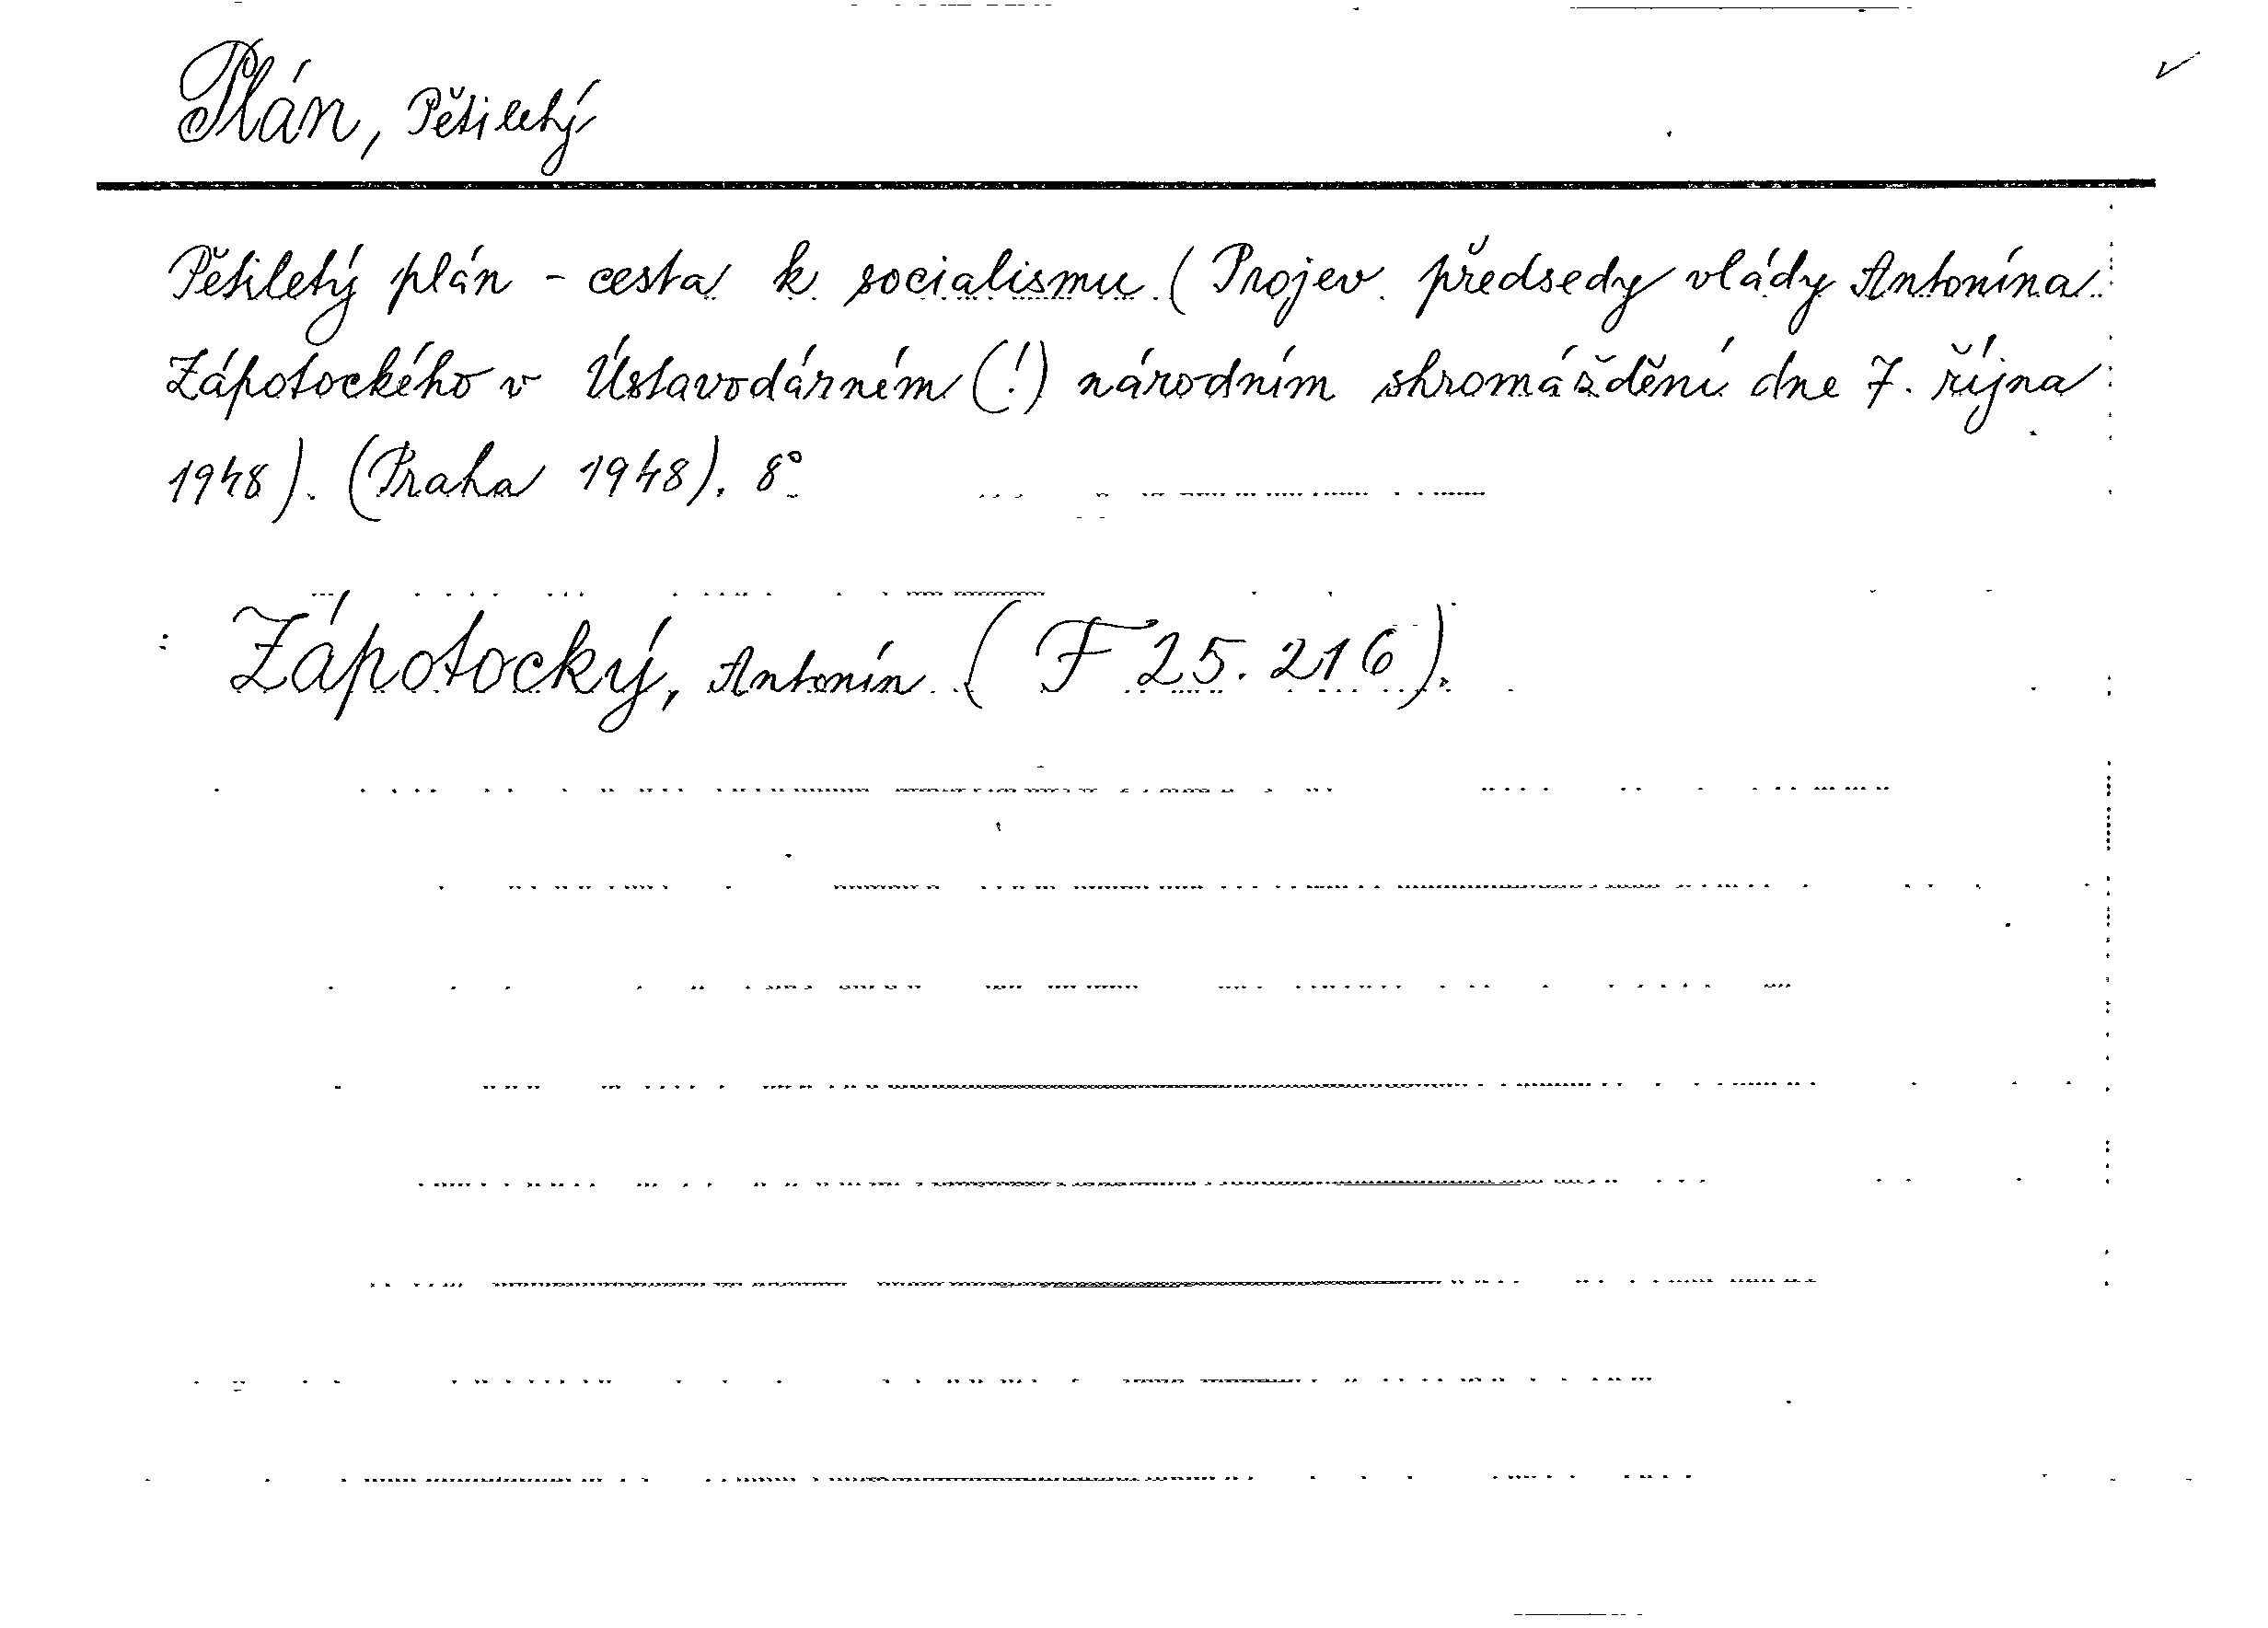 Plán, Pětiletý
Pětiletý plán - cesta k socialismu (Projev předsedy vlády Antonína
Zápotockého v Ústavodárném (!) národním shromáždění dne 7. října
1948). (Praha 1948). 8°
: Zápotocký, Antonín (F 25.216).